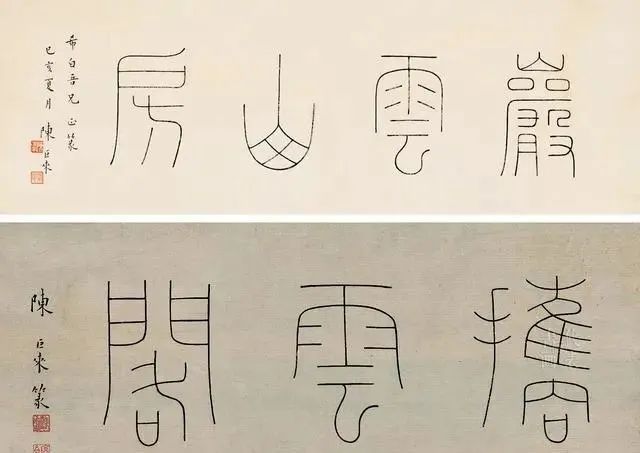 巖雲山房
希白吾兄正篆
己亥夏月陳巨來
攜雲閣
陳巨來篆